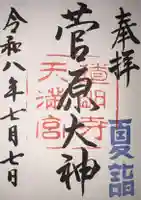 奉拝
夏詣
菅原大神
道明寺
天満宮
令和八年七月七日